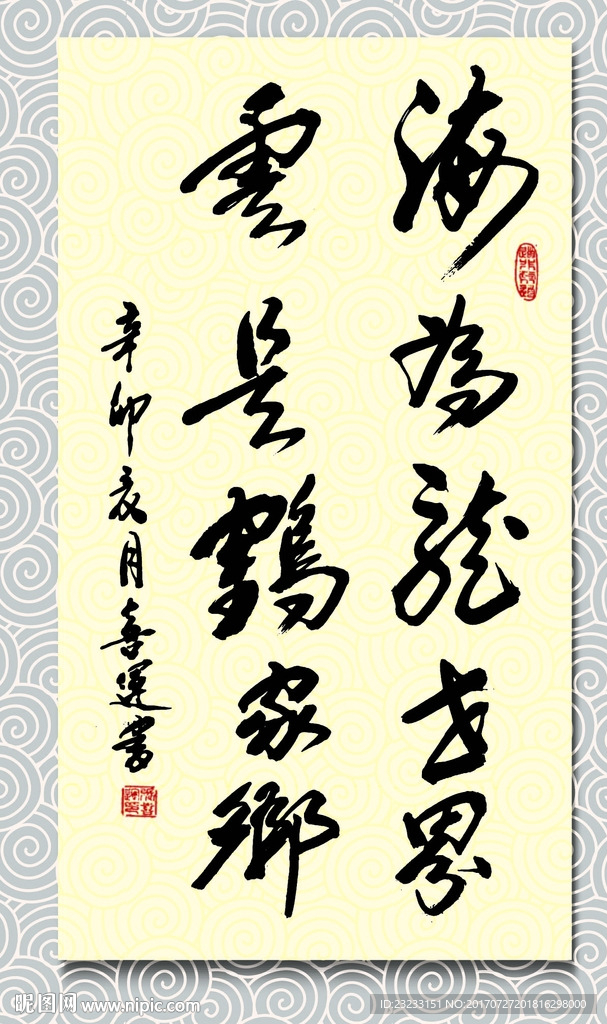 海為龍世界
雲是鶴家鄉
辛卯亥月喜運書
昵图网 www.nipic.com
ID:23233151 NO:20170727201816298000